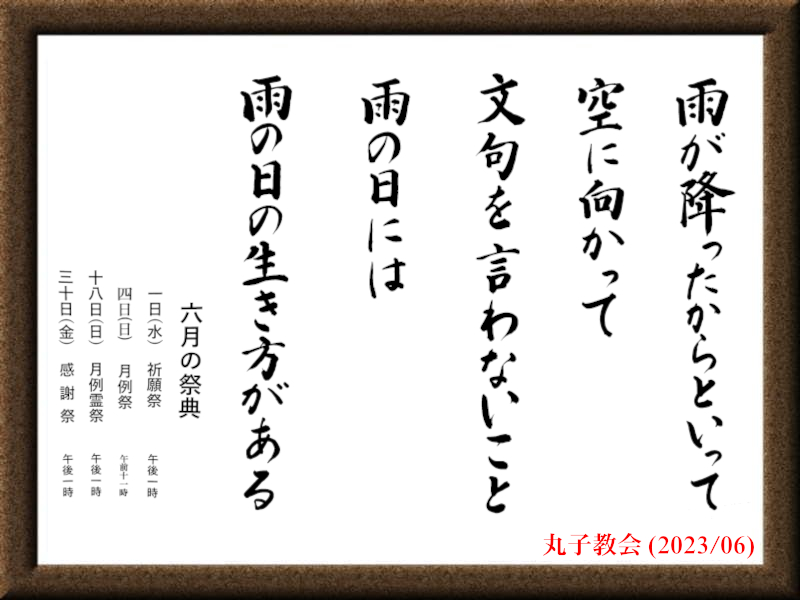 雨が降ったからといって
空に向かって
文句を言わないこと
雨の日には
雨の日の生き方がある
六月の祭典
一日(水) 祈願祭 午後一時
四日(日) 月例祭 午前十一時
十八日(日) 月例霊祭 午後一時
三十日(金) 感謝祭 午後一時
丸子教会 (2023/06)